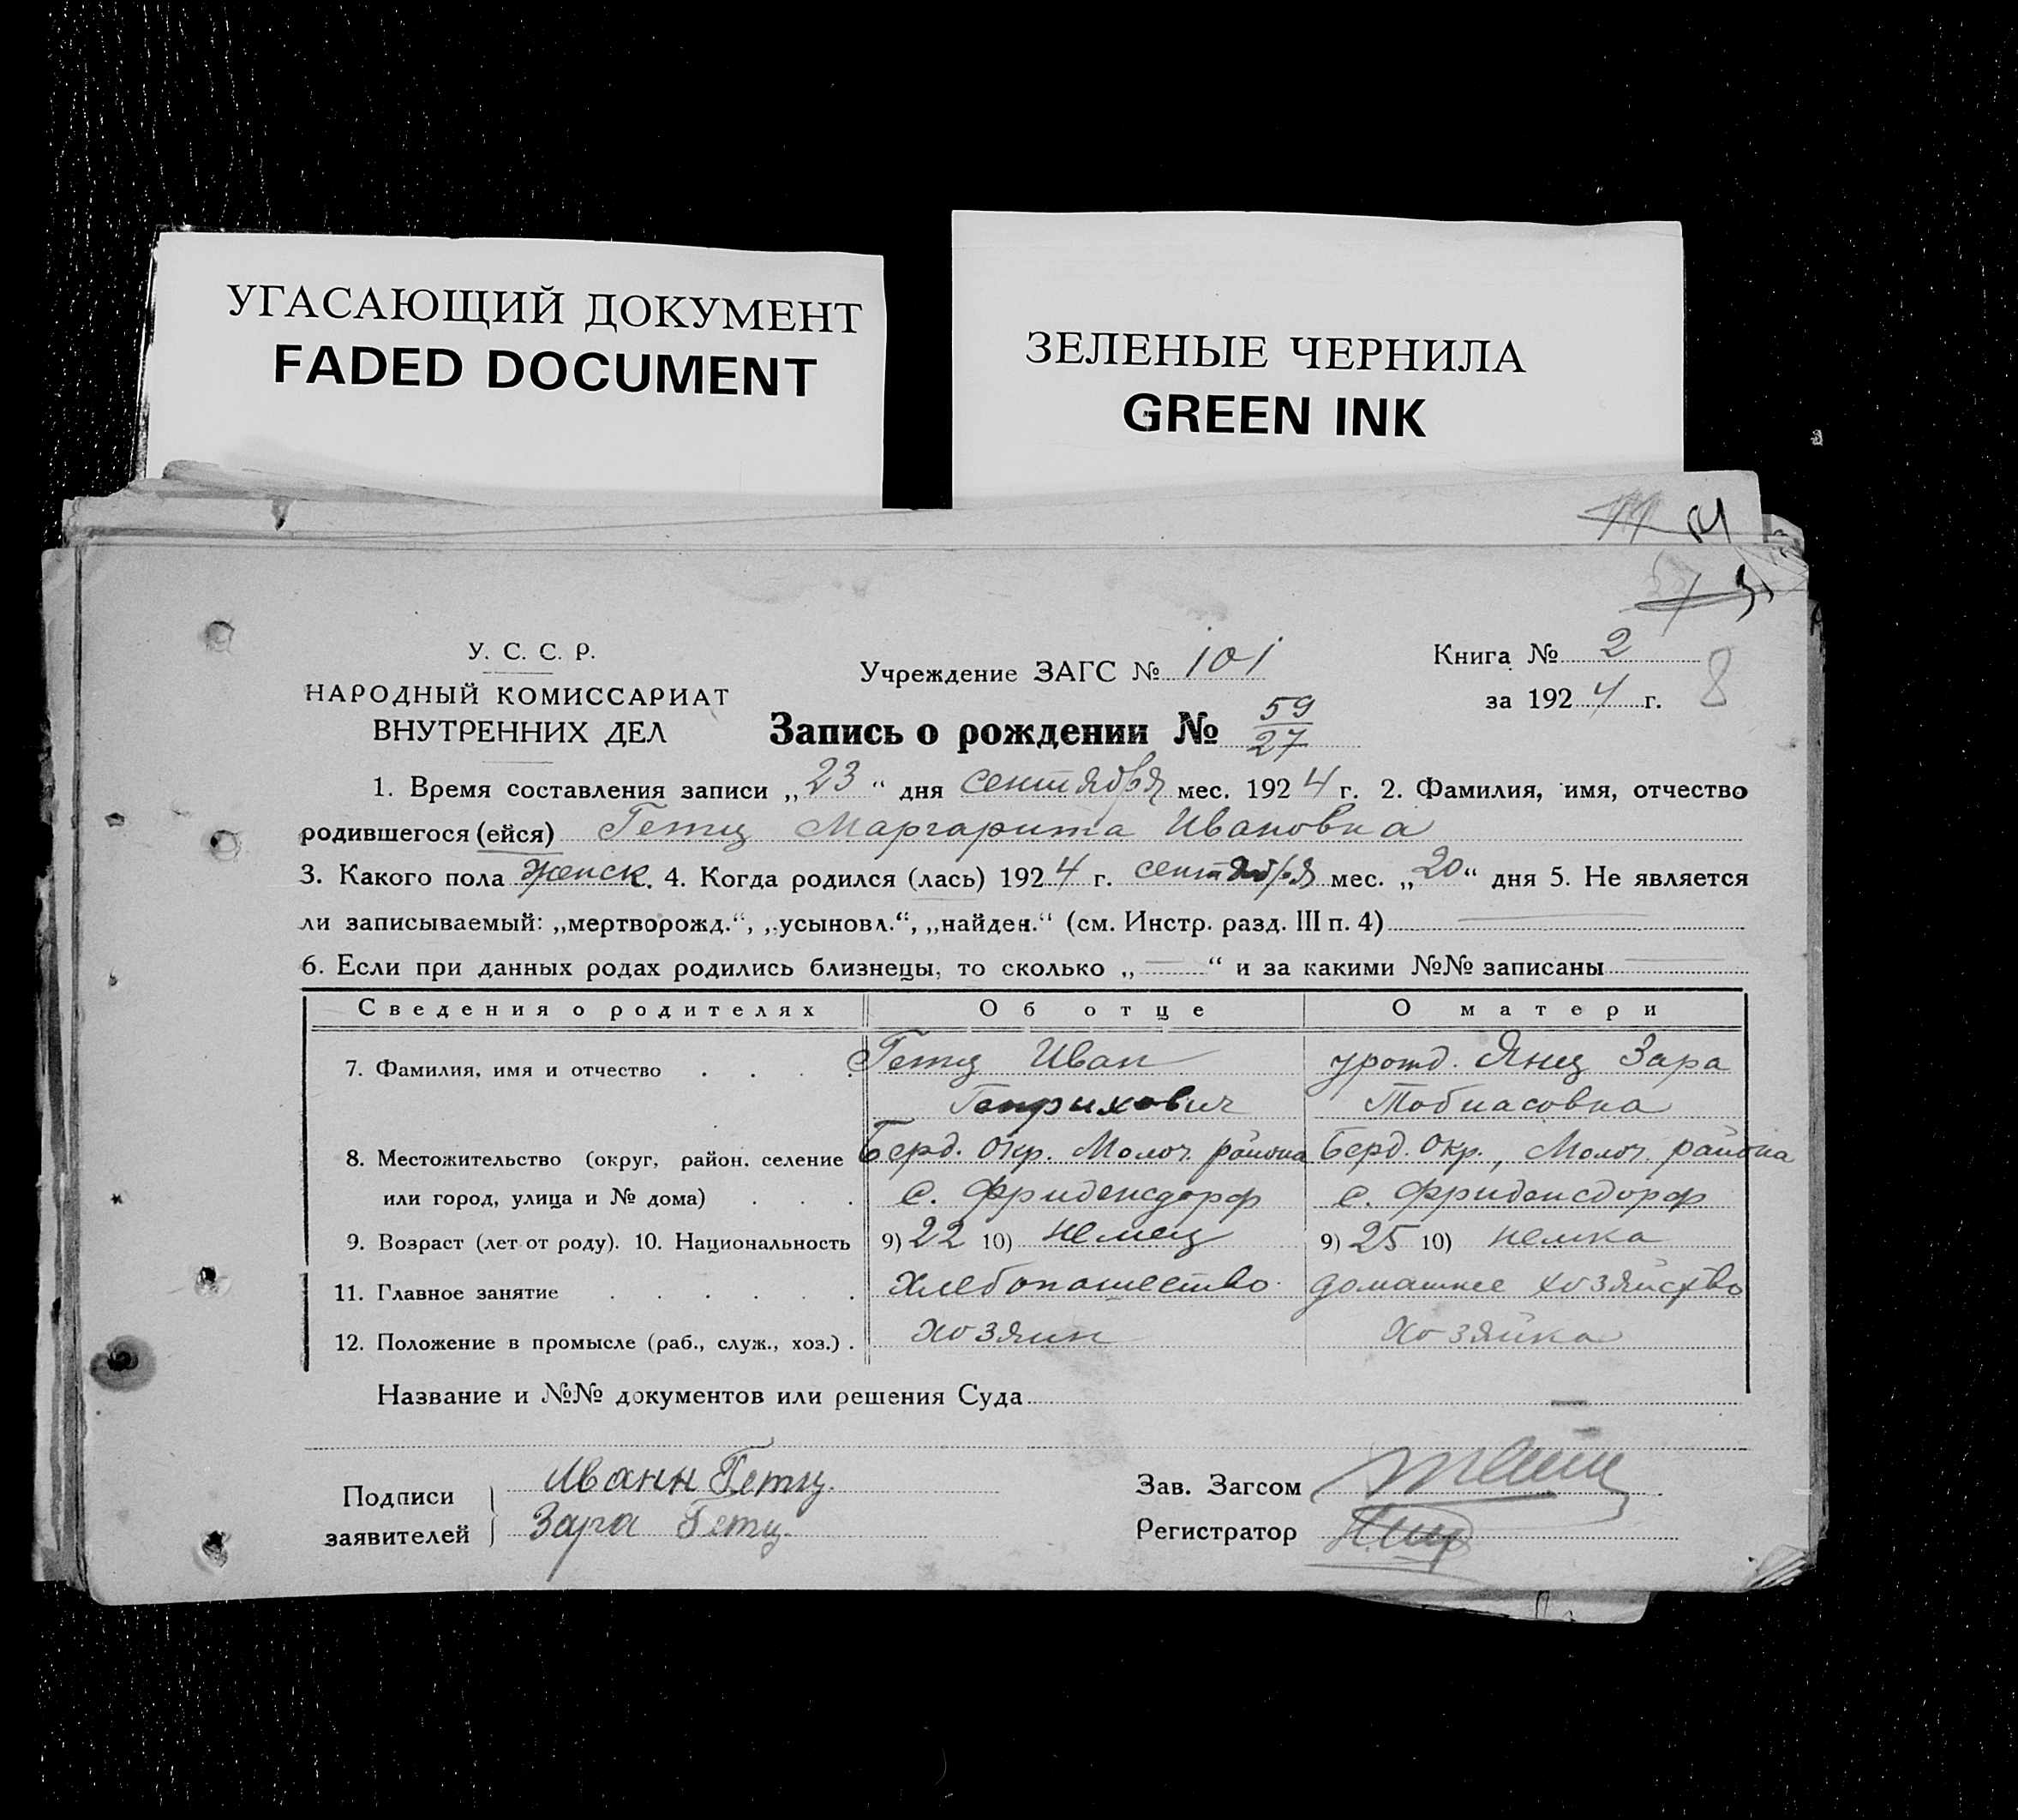 УГАСАЮЩИЙ ДОКУМЕНТ
FADED DOCUMENT
ЗЕЛЕНЫЕ ЧЕРНИЛА
GREEN INK
У. С. С. Р.
НАРОДНЫЙ КОМИССАРИАТ
ВНУТРЕННИХ ДЕЛ
Учреждение ЗАГС № 101
Книга № 2
за 1924 г. 8
Запись о рождении № 59/27
1. Время составления записи „23“ дня сентября мес. 1924 г. 2. Фамилия, имя, отчество
родившегося (ейся) Гетц Маргарита Ивановна
3. Какого пола женск. 4. Когда родился (лась) 1924 г. сентября мес. „20“ дня 5. Не является
ли записываемый: „мертворожд.“, „усыновл.“, „найден.“ (см. Инстр. разд. III п. 4)
6. Если при данных родах родились близнецы, то сколько „—“ и за какими №№ записаны —
Сведения о родителях Об отце О матери
7. Фамилия, имя и отчество . . . . Гетц Иван урожд. Янц Зара
Генрихович Тобиасовна
8. Местожительство (округ, район, селение Берд. Окр. Молоч. района Берд. Окр., Молоч. района
или город, улица и № дома) . . . с. Фриденсдорф с. Фриденсдорф
9. Возраст (лет от роду). 10. Национальность 9) 22 10) немец 9) 25 10) немка
11. Главное занятие . . . . . . хлебопашество домашнее хозяйство
12. Положение в промысле (раб., служ., хоз.) . хозяин хозяйка
Название и №№ документов или решения Суда —
Подписи Иванн Гетц.
заявителей Зара Гетц.
Зав. Загсом
Регистратор